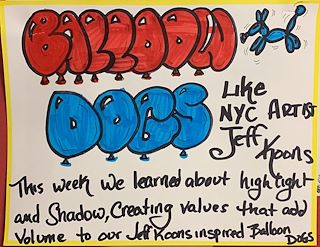 BALLOON
DOGS
Like
NYC ARTIST
Jeff
Koons
This week we learned about high light
and Shadow, Creating values that add
Volume to our Jeff Koons inspired Balloon
DOGS